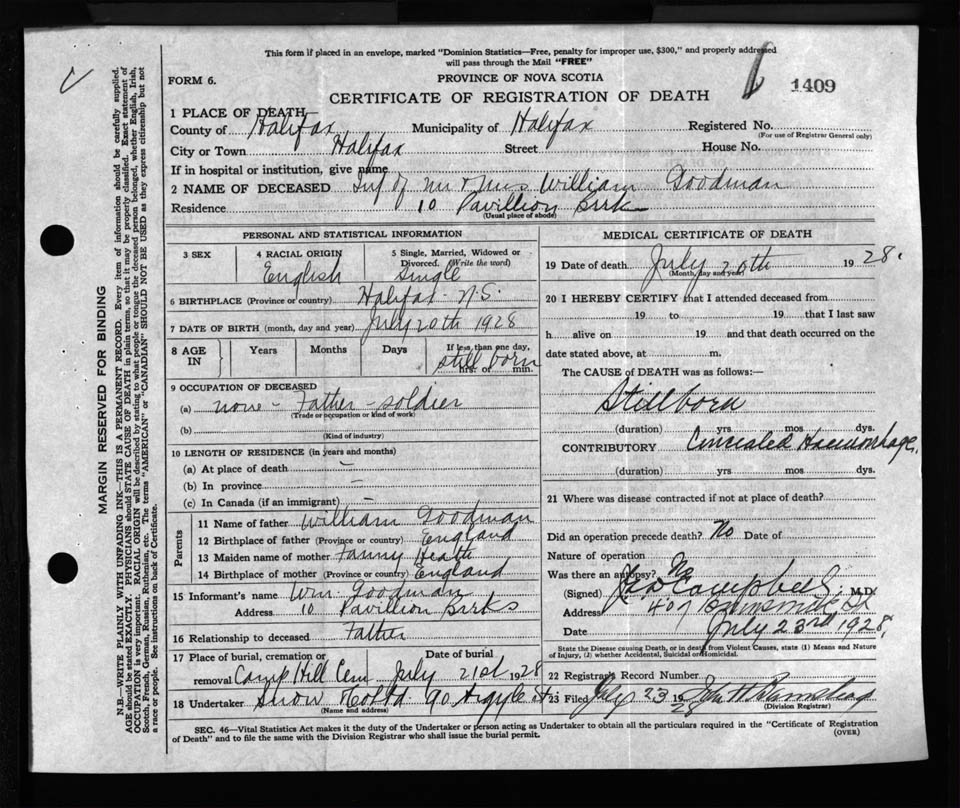 This form if placed in an envelope, marked "Dominion Statistics—Free, penalty for improper use, $300," and properly addressed
will pass through the Mail "FREE"
FORM 6.
PROVINCE OF NOVA SCOTIA
CERTIFICATE OF REGISTRATION OF DEATH
1409
1 PLACE OF DEATH
County of Halifax Municipality of Halifax Registered No.
(For use of Registrar General only)
City or Town Halifax Street House No.
If in hospital or institution, give name
2 NAME OF DECEASED Inf of Mr & Mrs William Goodman
Residence 10 Pavillion Brrks
(Usual place of abode)
PERSONAL AND STATISTICAL INFORMATION
3 SEX
4 RACIAL ORIGIN English
5 Single, Married, Widowed or Divorced. (Write the word) Single
6 BIRTHPLACE (Province or country) Halifax - N.S.
7 DATE OF BIRTH (month, day and year) July 20th 1928
8 AGE IN Years Months Days If less than one day, hrs. or min. still born
9 OCCUPATION OF DECEASED
(a) none - Father - soldier
(Trade or occupation or kind of work)
(b)
(Kind of industry)
10 LENGTH OF RESIDENCE (in years and months)
(a) At place of death —
(b) In province —
(c) In Canada (if an immigrant) —
Parents
11 Name of father William Goodman
12 Birthplace of father (Province or country) England
13 Maiden name of mother Fanny Heath
14 Birthplace of mother (Province or country) England
15 Informant's name Wm. Goodman
Address 10 Pavillion Brrks
16 Relationship to deceased Father
17 Place of burial, cremation or removal Camp Hill Cem
Date of burial July 21st 1928
18 Undertaker Snow & Co Ltd 90 Argyle St
(Name and address)
MEDICAL CERTIFICATE OF DEATH
19 Date of death July 20th 1928.
(Month, day and year)
20 I HEREBY CERTIFY that I attended deceased from
19 to 19 that I last saw
h alive on 19 and that death occurred on the
date stated above, at m.
The CAUSE of DEATH was as follows:—
Stillborn
(duration) yrs mos dys.
CONTRIBUTORY Concealed Haemorrhage.
(duration) yrs mos dys.
21 Where was disease contracted if not at place of death?
Did an operation precede death? No Date of
Nature of operation
Was there an autopsy? No
(Signed) Geo Campbell, M.D.
Address 407 Brunswick St
Date July 23rd 1928.
State the Disease causing Death, or in death from Violent Causes, state (1) Means and Nature
of Injury, (2) whether Accidental, Suicidal or Homicidal.
22 Registrar's Record Number
23 Filed July 23 1928
(Division Registrar)
SEC. 46—Vital Statistics Act makes it the duty of the Undertaker or person acting as Undertaker to obtain all the particulars required in the "Certificate of Registration
of Death" and to file the same with the Division Registrar who shall issue the burial permit.
(OVER)
MARGIN RESERVED FOR BINDING
N.B.—WRITE PLAINLY WITH UNFADING INK—THIS IS A PERMANENT RECORD. Every item of information should be carefully supplied.
AGE should be stated EXACTLY. PHYSICIANS should STATE CAUSE OF DEATH in plain terms, so that it may be properly classified. Exact statement of
OCCUPATION is very important. RACIAL ORIGIN will be described by stating to what people or tongue the deceased person belonged, whether English, Irish,
Scotch, French, German, Russian, Ruthenian, etc. The terms "AMERICAN" or "CANADIAN" SHOULD NOT BE USED as they express citizenship but not
a race or people. See instructions on back of Certificate.